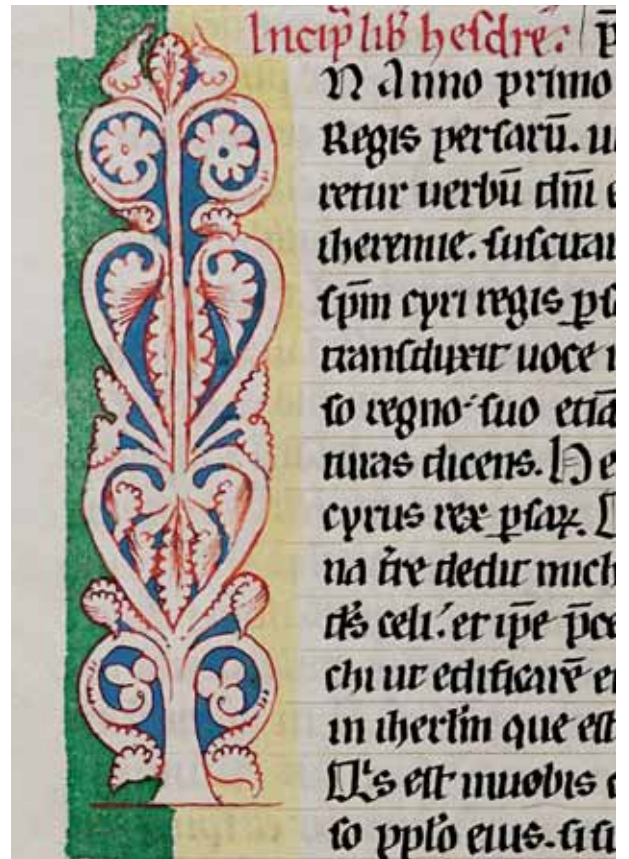 Incip̄ lib̄ hesdre:
N Anno primo
Regis persarū. u
retur uerbū dn̄i e
iheremie. suscitau
sp̄m cyri regis ps
transduxit uoce i
so regno suo etiā
turas dicens. H e
cyrus rex psaꝝ.
na t̄re dedit mich
ds̄ celi. et ip̄e p̄ce
chi ut edificarē ei
in iherl̄m que est
Q's est in uobis
so pplo eius. sit